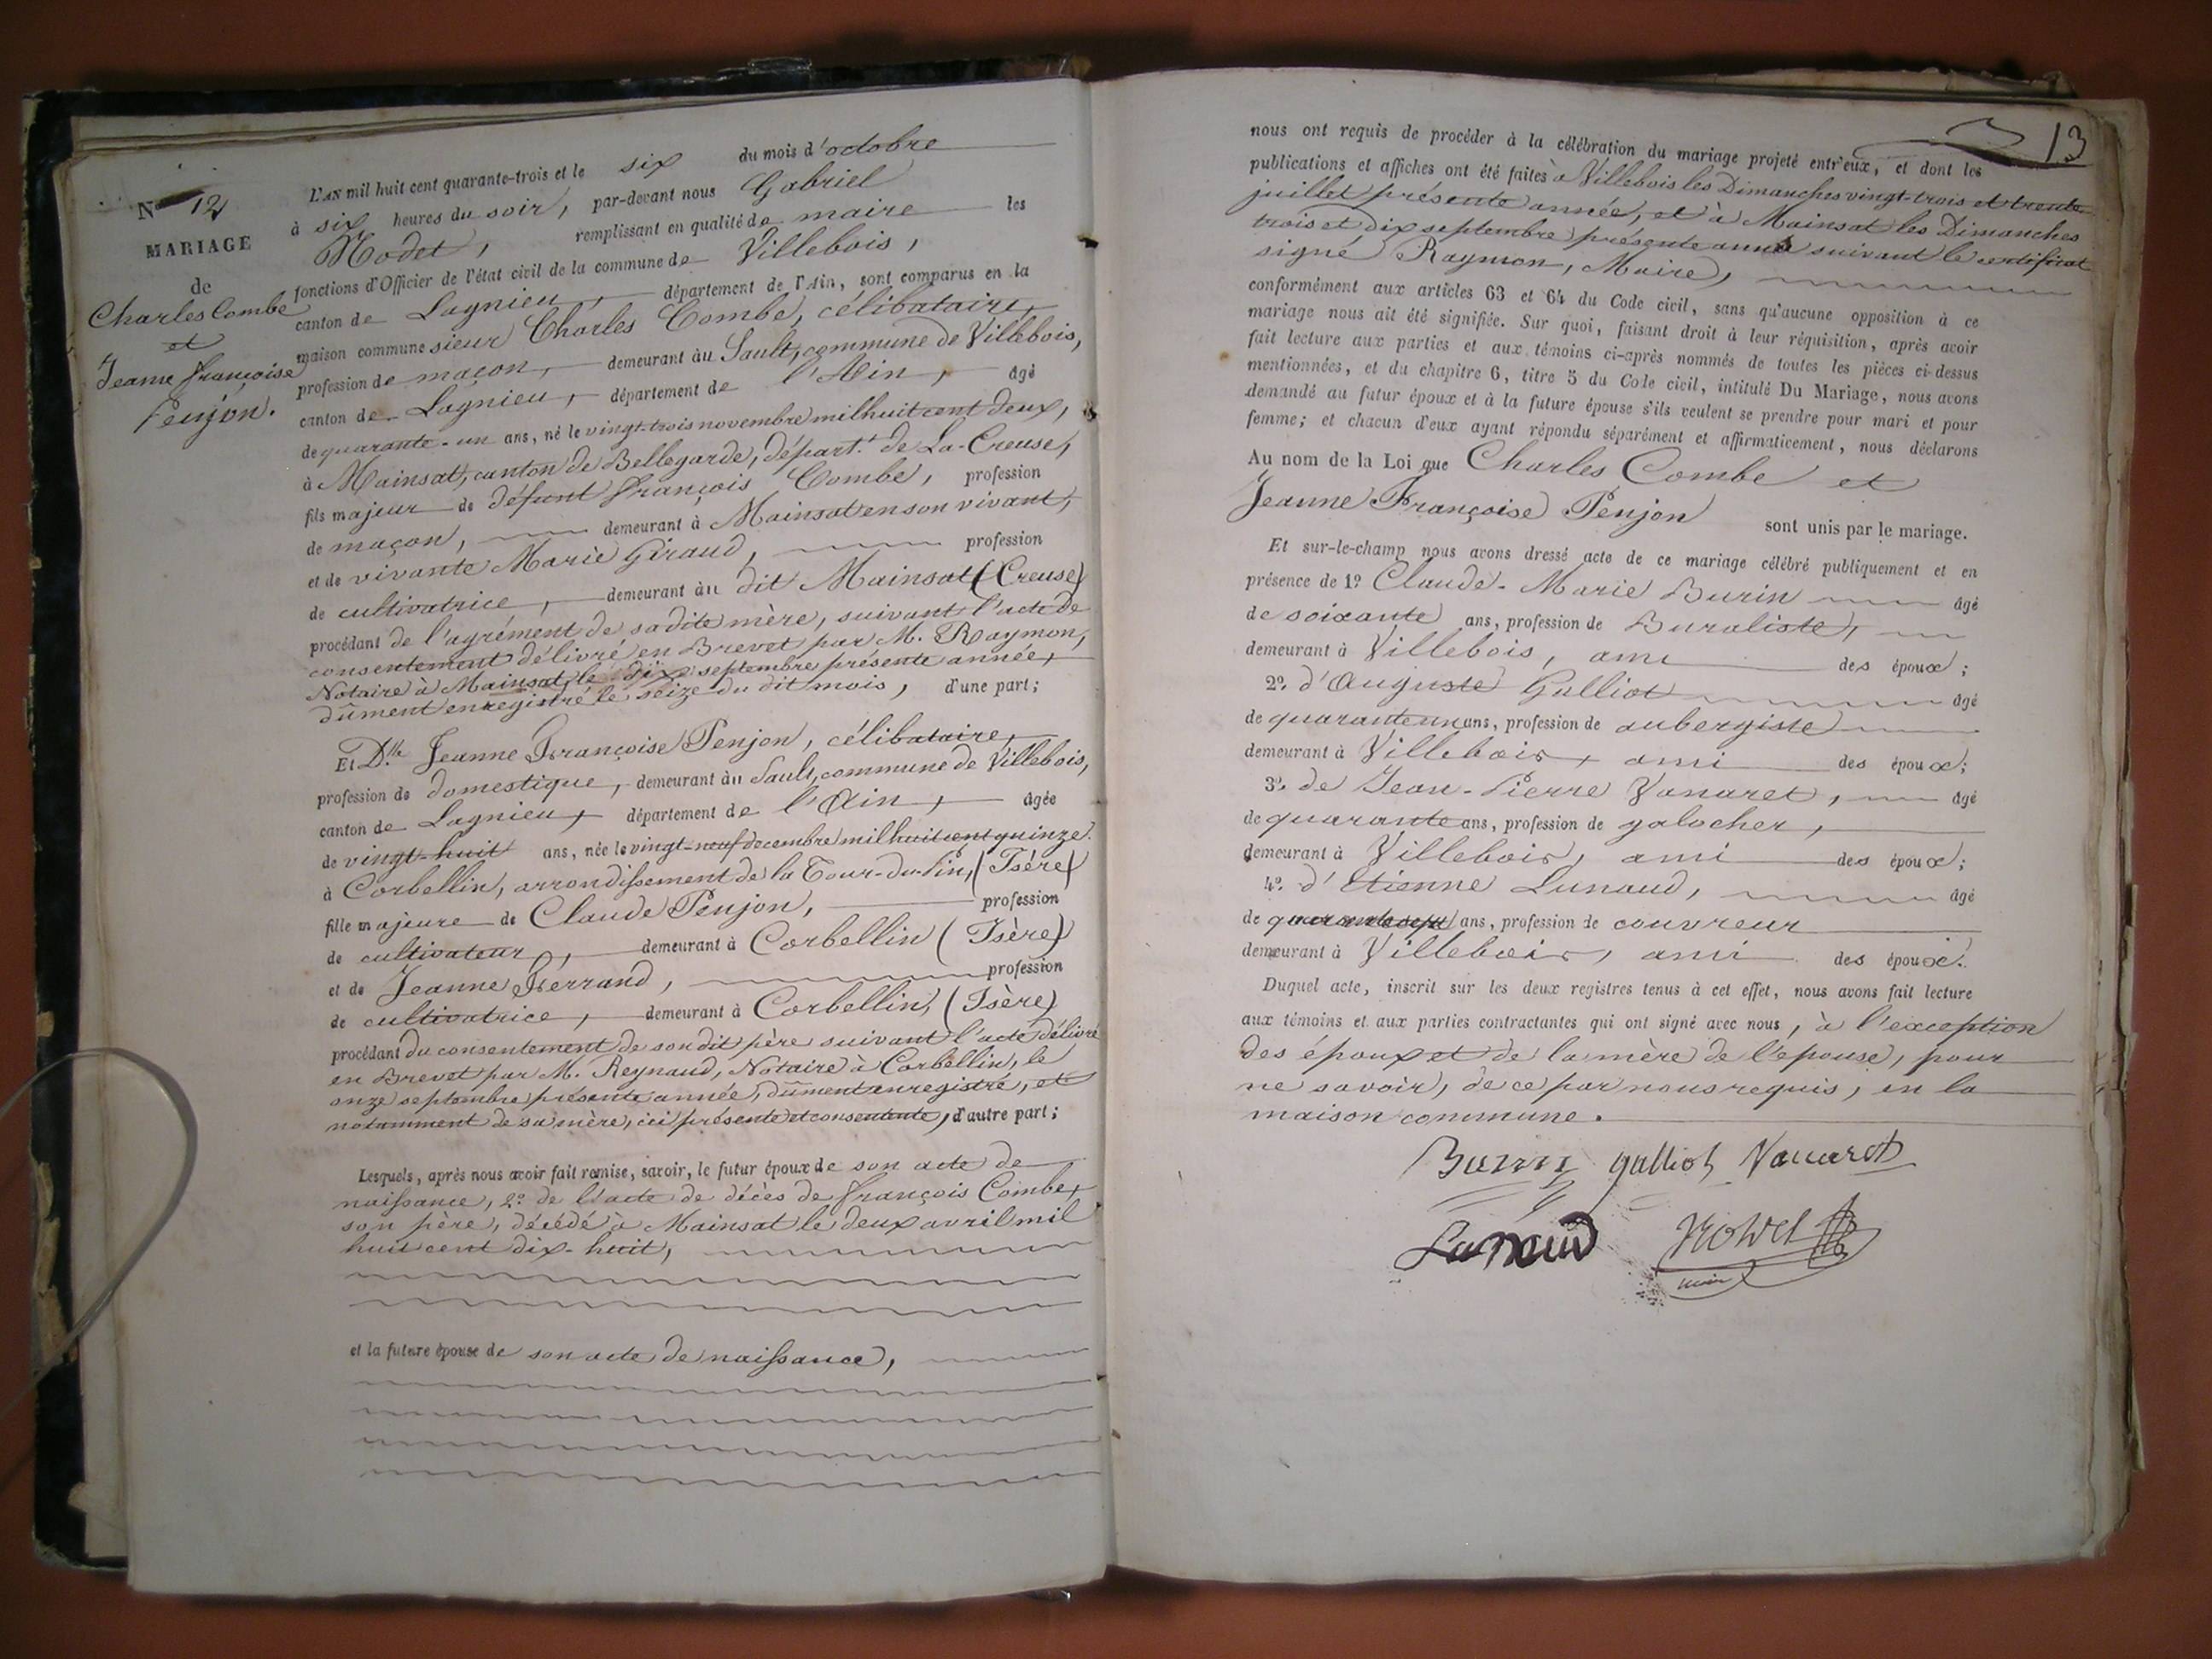 N° 12
MARIAGE
de
Charles Combe
et
Jeanne françoise
Penjon.
L'AN mil huit cent quarante-trois et le six du mois d'octobre
à six heures du soir, par-devant nous Gabriel
Rodet, remplissant en qualité de maire les
fonctions d'Officier de l'état civil de la commune de Villebois,
canton de Lagnieu, département de l'Ain, sont comparus en la
maison commune sieur Charles Combe, célibataire,
profession de maçon, demeurant au Sault, commune de Villebois,
canton de Lagnieu, département de l'Ain, âgé
de quarante-un ans, né le vingt-trois novembre mil huit cent deux,
à Mainsat, canton de Bellegarde, départ.t de La-Creuse,
fils majeur de défunt françois Combe, profession
de maçon, demeurant à Mainsat en son vivant,
et de vivante Marie Giraud, profession
de cultivatrice, demeurant au dit Mainsat (Creuse)
procédant de l'agrément de sa dite mère, suivant l'acte de
consentement délivré en Brevet par M. Raymon,
Notaire à Mainsat, le dix septembre présente année,
dûment enregistré le seize du dit mois, d'une part;
Et D.lle Jeanne Françoise Penjon, célibataire,
profession de domestique, demeurant au Sault, commune de Villebois,
canton de Lagnieu, département de l'Ain, âgée
de vingt-huit ans, née le vingt-neuf decembre mil huit cent quinze
à Corbellin, arrondissement de la Tour-du-Pin, (Isére)
fille majeure de Claude Penjon, profession
de cultivateur, demeurant à Corbellin (Isère)
et de Jeanne Ferrand, profession
de cultivatrice, demeurant à Corbellin, (Isère)
procédant du consentement de son dit père suivant l'acte délivré
en Brevet par M. Reynaud, Notaire à Corbellin, le
onze septembre présente année, dûment enregistré, et
notamment de sa mère, ici présente et consentente, d'autre part;
Lesquels, après nous avoir fait remise, savoir, le futur époux de son acte de
naissance, 2° de l'acte de décès de françois Combe,
son père, décédé à Mainsat le deux avril mil
huit cent dix-huit,
et la future épouse de son acte de naissance,
13
nous ont requis de procéder à la célébration du mariage projeté entr'eux, et dont les
publications et affiches ont été faites à Villebois les Dimanches vingt-trois et trente
juillet présente année, et à Mainsat les Dimanches
trois et dix septembre présente année suivant le certificat
signé Raymon, Maire,
conformément aux articles 63 et 64 du Code civil, sans qu'aucune opposition à ce
mariage nous ait été signifiée. Sur quoi, faisant droit à leur réquisition, après avoir
fait lecture aux parties et aux témoins ci-après nommés de toutes les pièces ci-dessus
mentionnées, et du chapitre 6, titre 5 du Code civil, intitulé Du Mariage, nous avons
demandé au futur époux et à la future épouse s'ils veulent se prendre pour mari et pour
femme; et chacun d'eux ayant répondu séparément et affirmativement, nous déclarons
Au nom de la Loi que Charles Combe et
Jeanne Françoise Penjon sont unis par le mariage.
Et sur-le-champ nous avons dressé acte de ce mariage célébré publiquement et en
présence de 1° Claude-Marie Burin âgé
de soixante ans, profession de Buraliste,
demeurant à Villebois, ami des époux;
2° d'Auguste Galliot âgé
de quarante un ans, profession de aubergiste
demeurant à Villebois, ami des époux;
3° de Jean-Pierre Vanaret, âgé
de quarante ans, profession de galocher,
demeurant à Villebois, ami des époux;
4° d'Etienne Lunaud, âgé
de quarante sept ans, profession de couvreur
demeurant à Villebois, ami des époux.
Duquel acte, inscrit sur les deux registres tenus à cet effet, nous avons fait lecture
aux témoins et aux parties contractantes qui ont signé avec nous, à l'exception
des époux et de la mère de l'épouse, pour
ne savoir, de ce par nous requis, en la
maison commune.
Burin galliot Vanaret
Lunaud Rodet
maire